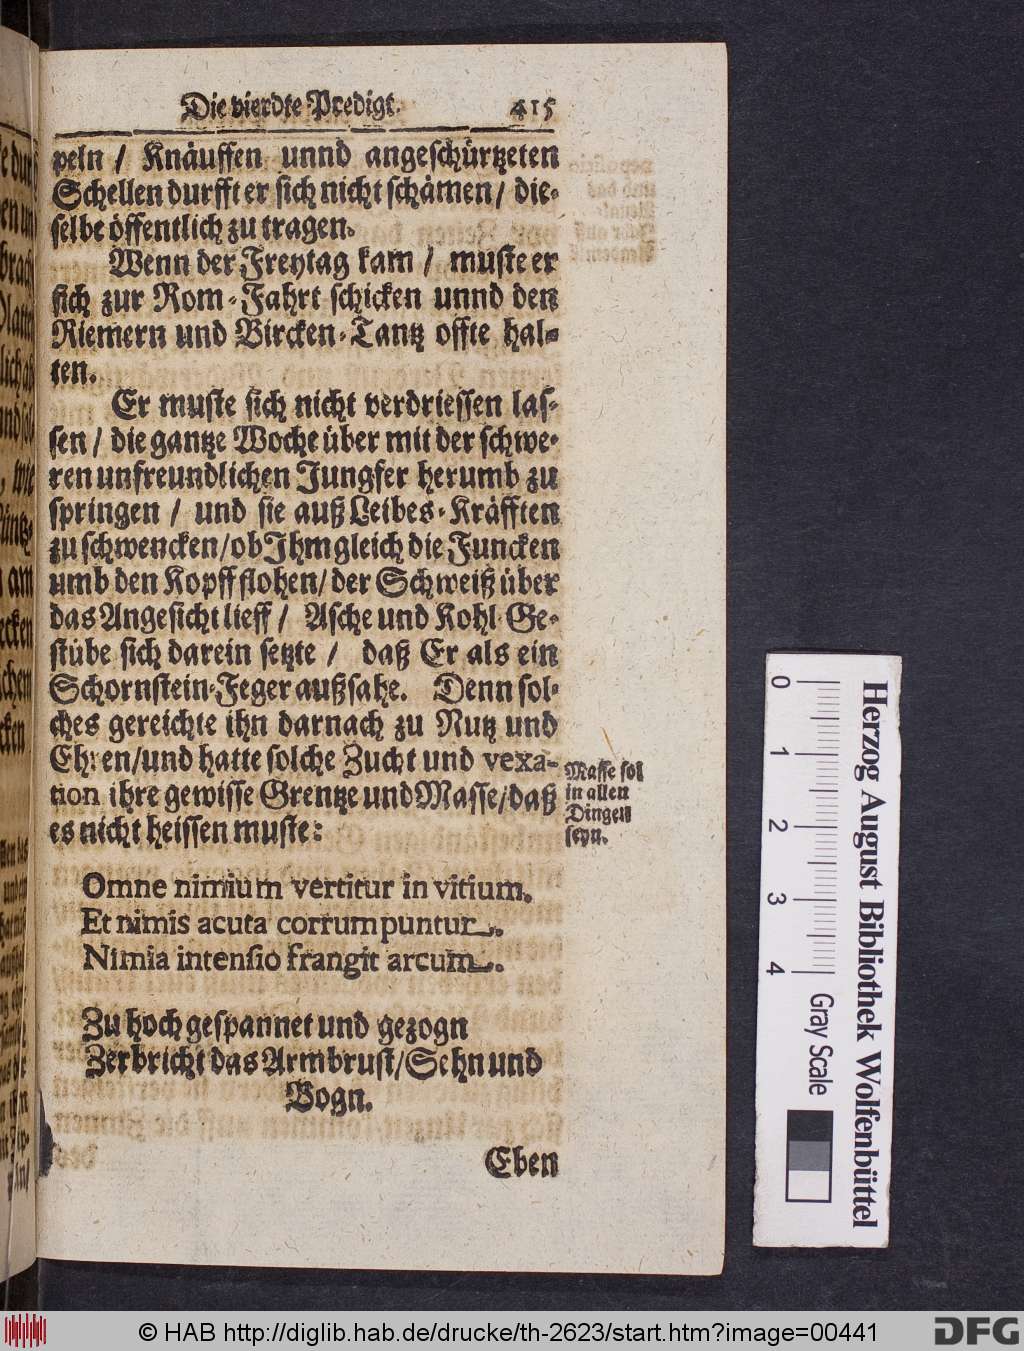 Die vierdte Predigt. 415
peln / Knäuffen unnd angeschürtzeten
Schellen durfft er sich nicht schämen / die-
selbe öffentlich zu tragen.
Wenn der Freytag kam / muste er
sich zur Rom-Fahrt schicken unnd den
Riemern und Bircken-Tantz offte hal-
ten.
Er muste sich nicht verdriessen las-
sen / die gantze Woche über mit der schwe-
ren unfreundlichen Jungfer herumb zu
springen / und sie auß Leibes-Kräfften
zu schwencken / ob Ihm gleich die Funcken
umb den Kopff flohen / der Schweiß über
das Angesicht lieff / Asche und Kohl-Ge-
stübe sich darein setzte / daß Er als ein
Schornstein-Feger außsahe. Denn sol-
ches gereichte ihn darnach zu Nutz und
Ehren / und hatte solche Zucht und vexa-
tion ihre gewisse Grentze und Masse / daß
es nicht heissen muste:
Masse sol
in allen
Dingen
seyn.
Omne nimium vertitur in vitium.
Et nimis acuta corrumpuntur.
Nimia intensio frangit arcum.
Zu hoch gespannet und gezogn
Zerbricht das Armbrust / Sehn und
Bogn.
Eben
0 1 2 3 4
Herzog August Bibliothek Wolfenbüttel
Gray Scale
© HAB http://diglib.hab.de/drucke/th-2623/start.htm?image=00441
DFG